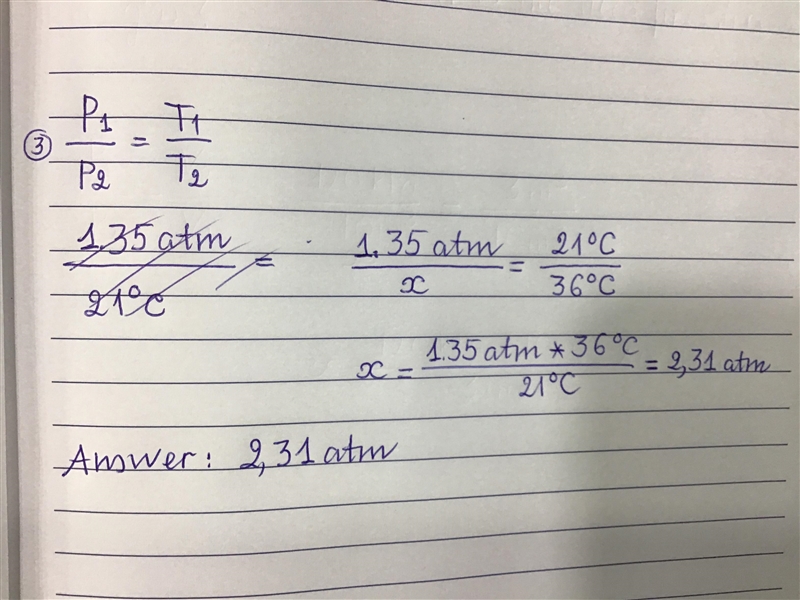 ③ P1/P2 = T1/T2
1.35 atm/21°C = 1.35 atm/x = 21°C/36°C
x = 1.35 atm * 36°C/21°C = 2,31 atm
Answer: 2,31 atm